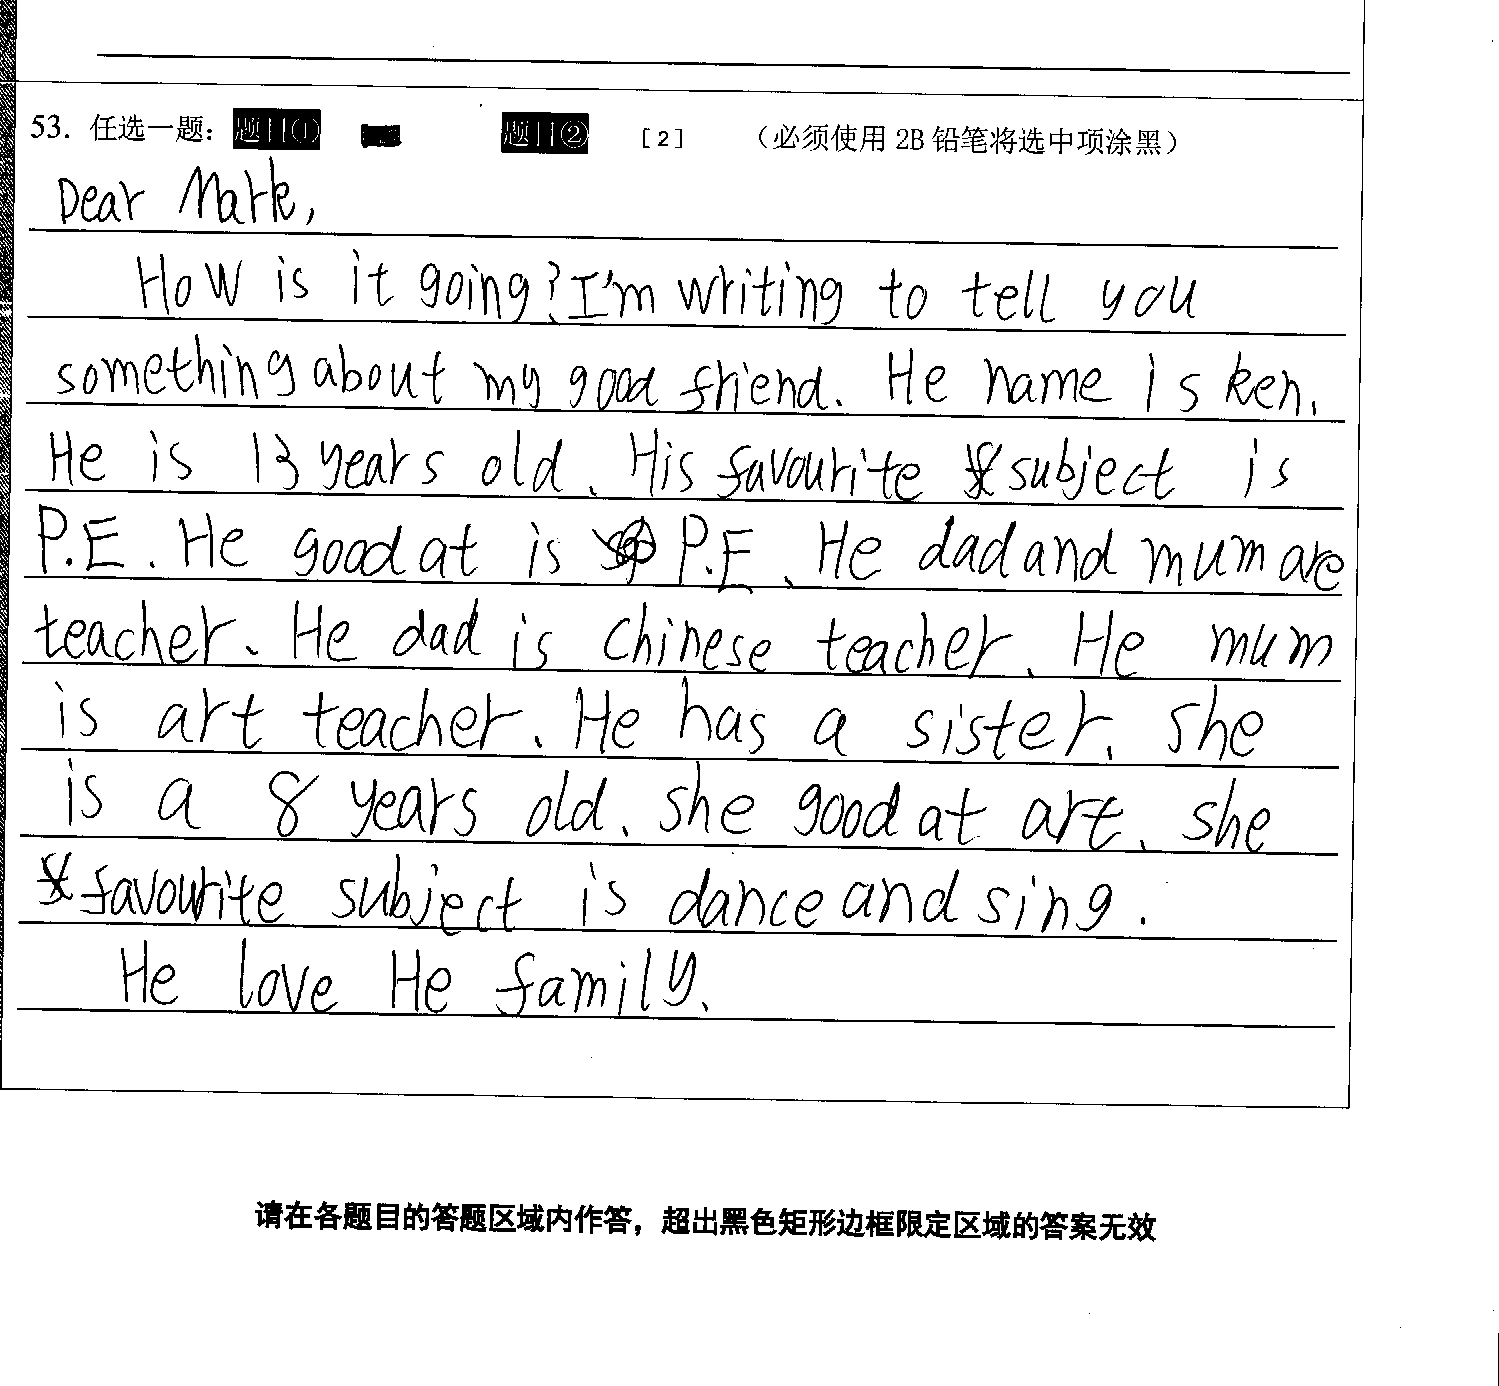 53. 任选一题： 题目① 题目② [2] （必须使用 2B 铅笔将选中项涂黑）
Dear Mark,
How is it going? I'm writing to tell you
something about my good friend. He name is ken.
He is 13 years old. His favourite subject is
P.E. He good at is P.E. He dad and mum are
teacher. He dad is Chinese teacher. He mum
is art teacher. He has a sister. she
is a 8 years old. she good at art. she
favourite subject is dance and sing.
He love He family.
请在各题目的答题区域内作答，超出黑色矩形边框限定区域的答案无效